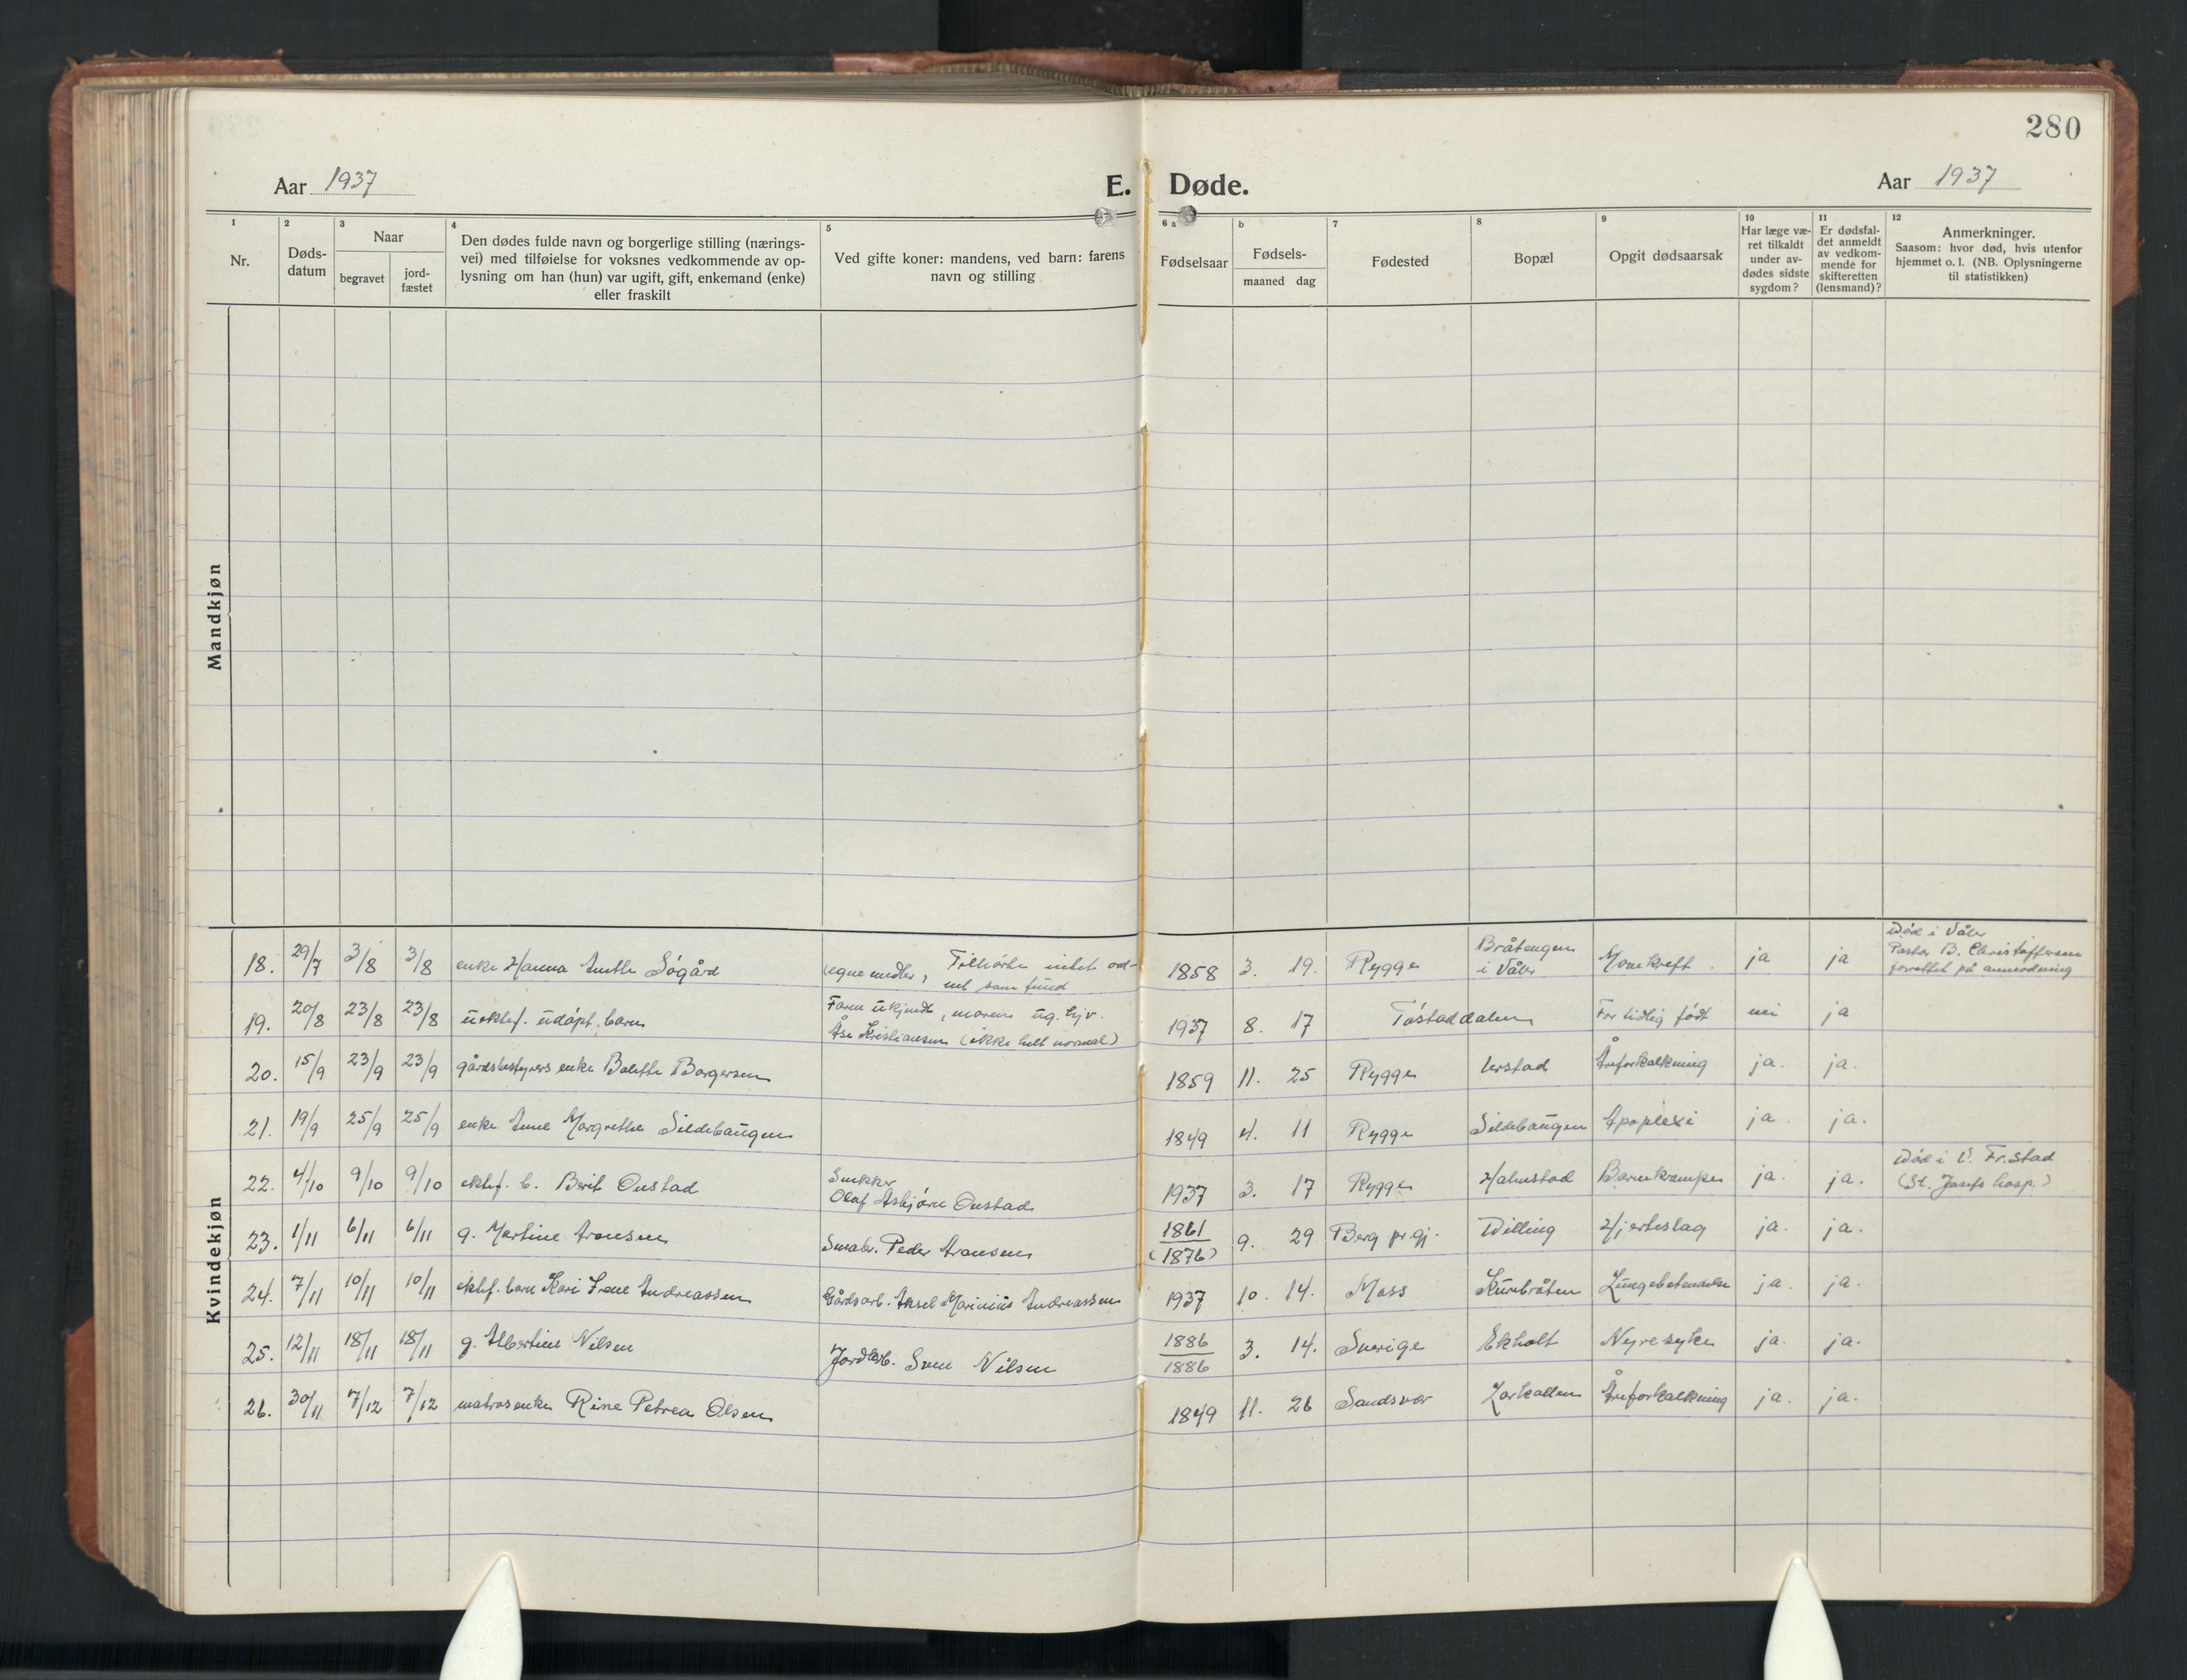 280
Aar 1937
E. Døde.
Aar 1937
1 2 3 4 5 6 a b 7 8 9 10 11 12
Nr.
Døds-
datum
Naar
begravet
jord-
fæstet
Den dødes fulde navn og borgerlige stilling (nærings-
vei) med tilføielse for voksnes vedkommende av op-
lysning om han (hun) var ugift, gift, enkemand (enke)
eller fraskilt
Ved gifte koner: mandens, ved barn: farens
navn og stilling
Fødselsaar
Fødsels-
maaned dag
Fødested
Bopæl
Opgit dødsaarsak
Har læge væ-
ret tilkaldt
under av-
dødes sidste
sygdom?
Er dødsfal-
det anmeldt
av vedkom-
mende for
skifteretten
(lensmand)?
Anmerkninger.
Saasom: hvor død, hvis utenfor
hjemmet o. l. (NB. Oplysningerne
til statistikken)
Mandkjøn
Kvindekjøn
18. 29/7 3/8 3/8 enke Hanna Søgård
(egne midler, Tilhørte intet
som fund
1858 3. 19. Rygge
Bråtengen
i Våler
ja ja
Død i Våler
Pastor B. Christoffersen
forrettet på anmodning
19. 20/8 23/8 23/8 uektef. udøpt. barn
Faren ukjendt, moren ug. hjv.
Åse Kristiansen (ikke helt normal)
1937 8. 17 Tøstaddalen For tidlig født nei ja
20. 15/9 23/9 23/9 gårdsbestyrers enke Bolette Borgersen
1859 11. 25 Rygge Åreforkalkning ja. ja.
21. 19/9 25/9 25/9 enke Anne Margrethe Sildebaugen
1849 4. 11 Rygge Sildebaugen Apoplexi ja. ja.
22. 4/10 9/10 9/10 ektef. b. Berit Onstad
Snekker
Olaf Asbjørn Onstad
1937 3. 17 Rygge Halmstad Barnekramper ja. ja.
Død i Fr.stad
(St. Josefs hosp.)
23. 1/11 6/11 6/11 g. Martine Aronsen
Småbr. Peder Aronsen
1861
(1876)
9. 29 Berg pr.gj. Dilling Hjerteslag ja. ja.
24. 7/11 10/11 10/11 ektef. barn Kari Irene Andreassen
Gårdsarb. Aksel Marinius Andreassen
1937 10. 14. Moss Kurebråten Lungebetendelse ja. ja.
25. 12/11 18/11 18/11 g. Albertine Nilsen
Jordarb. Sven Nilsen
1886
1886
3. 14. Sverige Ekholt Nyresyke ja. ja.
26. 30/11 7/12 7/12 matrosenke Rine Petrea Olsen
1849 11. 26 Sandsvær Larkollen Åreforkalkning ja. ja.